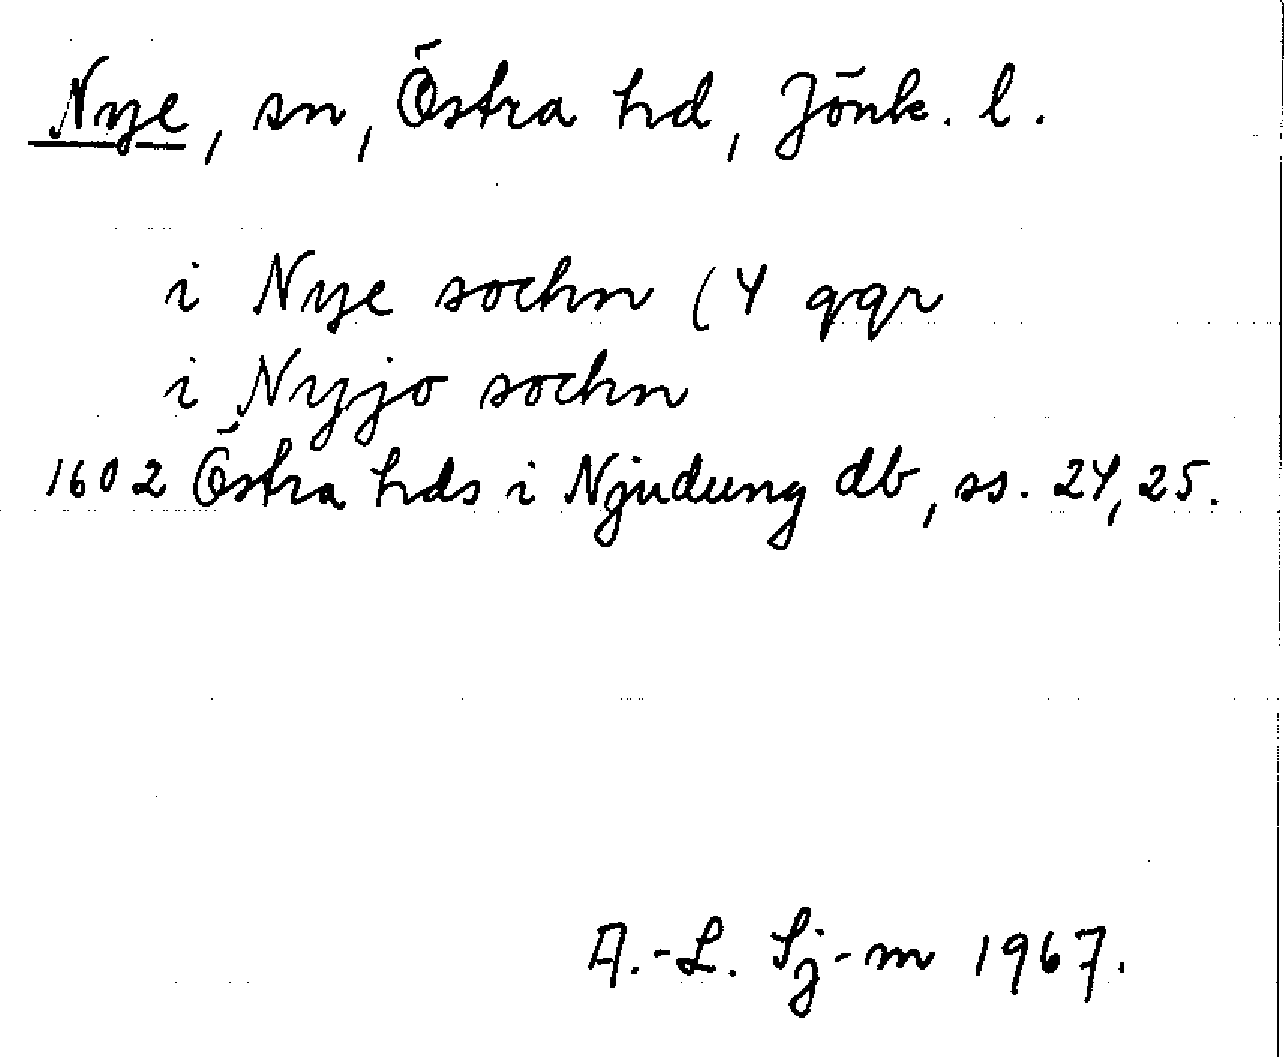 Nye, sn, Östra hd, Jönk. l.
i Nye sochn (4 ggr
i Nyjo sochn
1602 Östra hds i Njudung db, ss. 24, 25.
A.-L. Sj-m 1967.